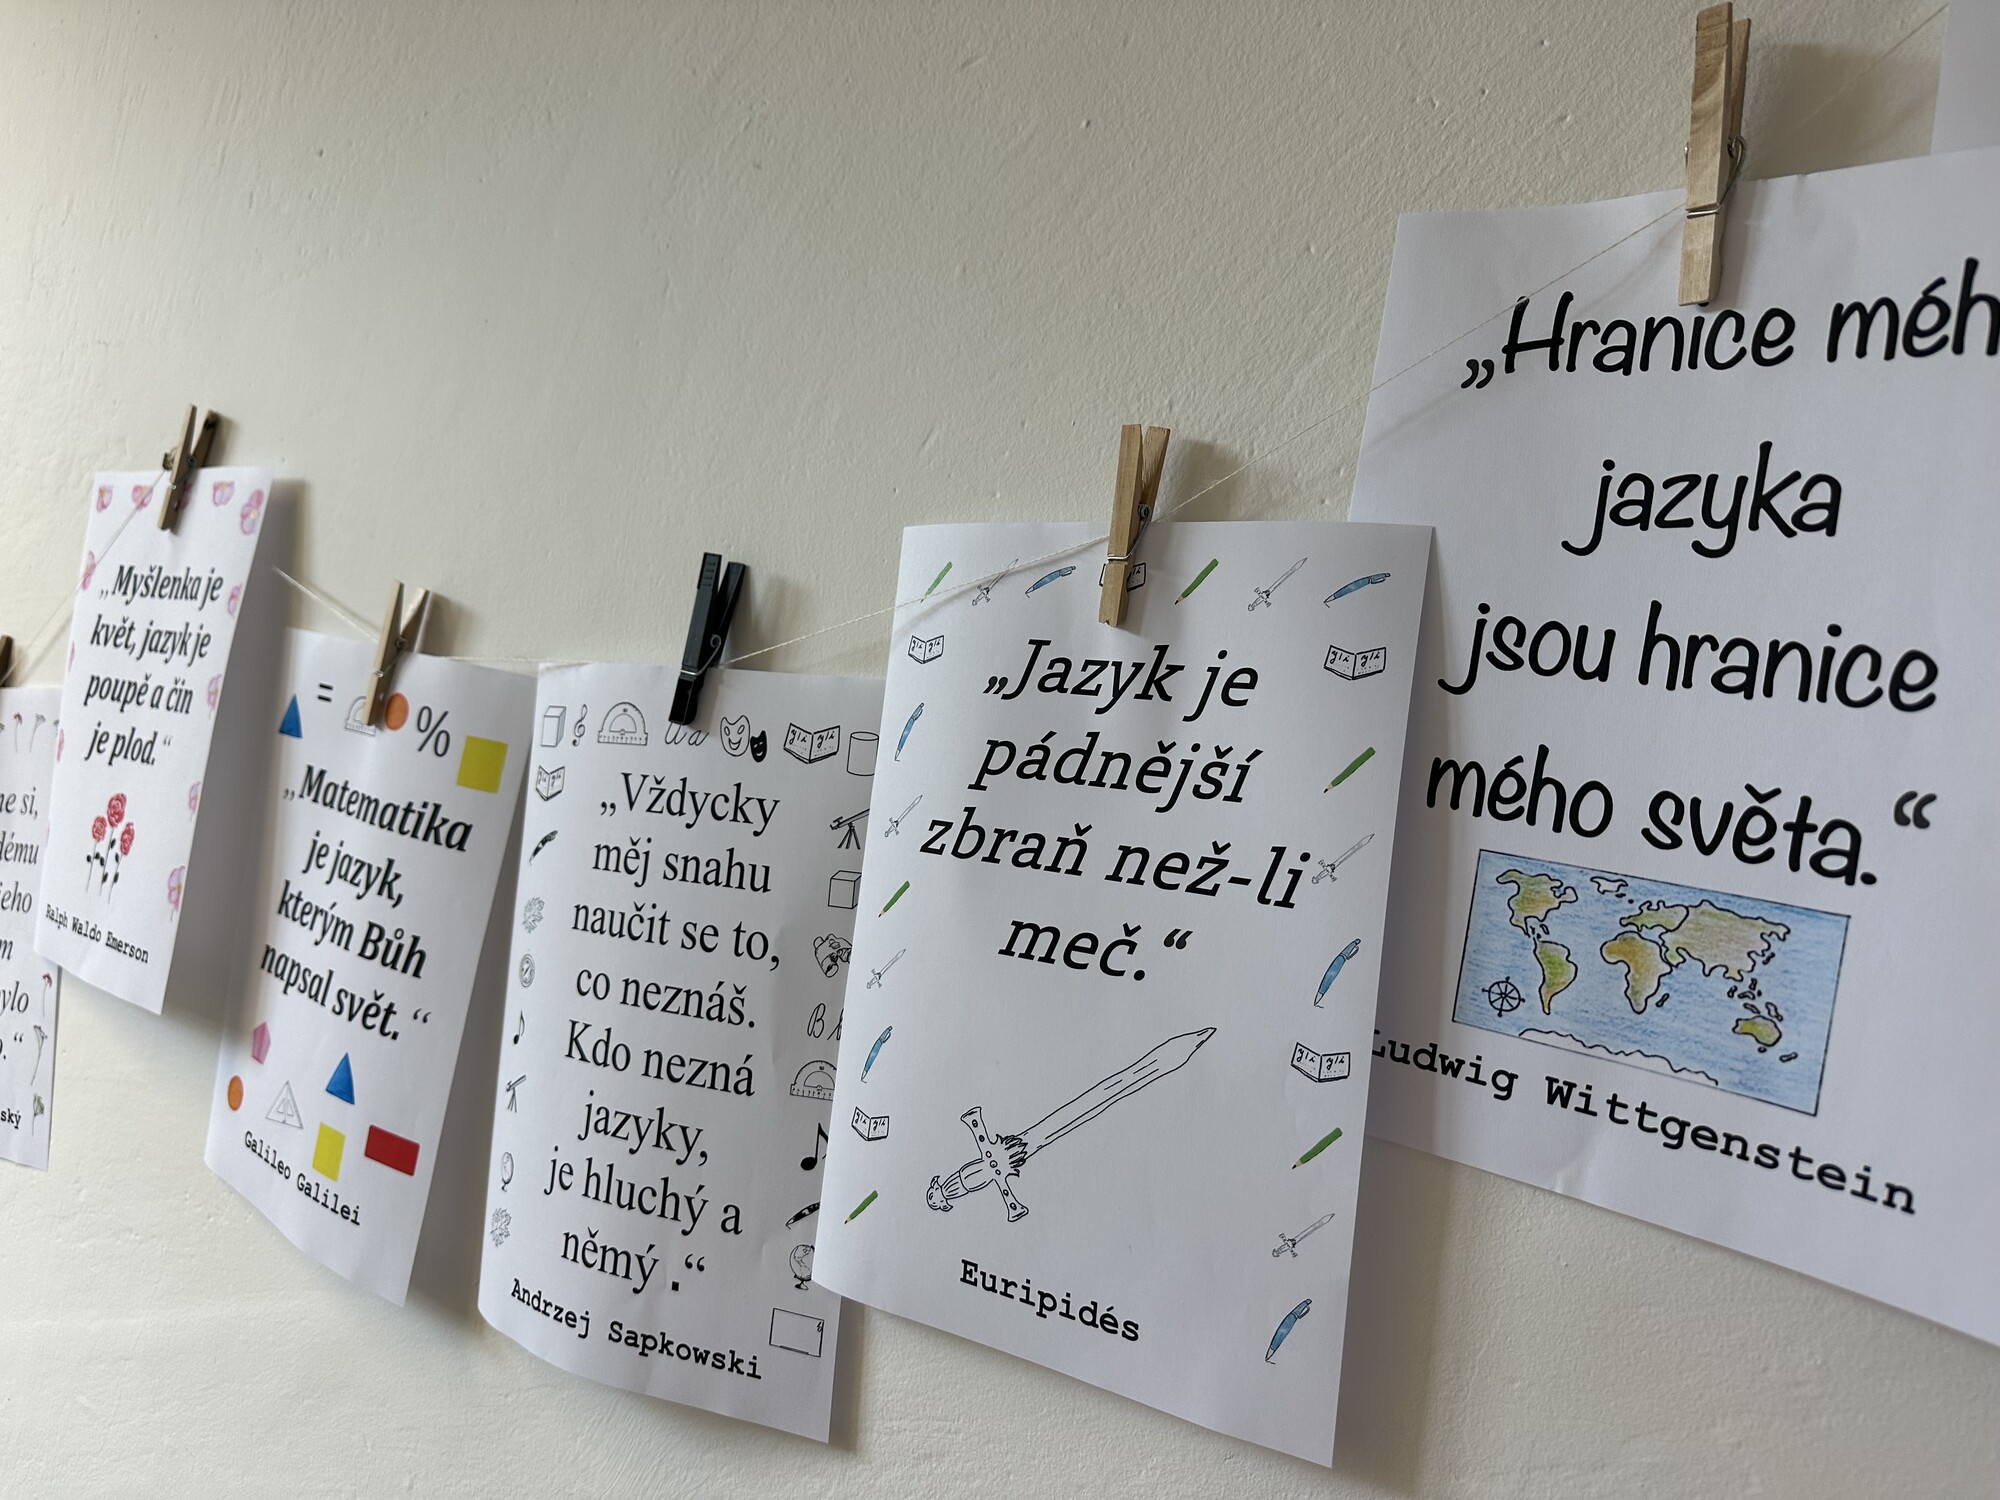 ne si,
jeho
m
o.“
ský
„Myšlenka je
květ, jazyk je
poupě a čin
je plod.“
Ralph Waldo Emerson
= %
„Matematika
je jazyk,
kterým Bůh
napsal svět.“
Galileo Galilei
„Vždycky
měj snahu
naučit se to,
co neznáš.
Kdo nezná
jazyky,
je hluchý a
němý .“
Andrzej Sapkowski
„Jazyk je
pádnější
zbraň než-li
meč.“
Euripidés
„Hranice méh
jazyka
jsou hranice
mého světa.“
Ludwig Wittgenstein